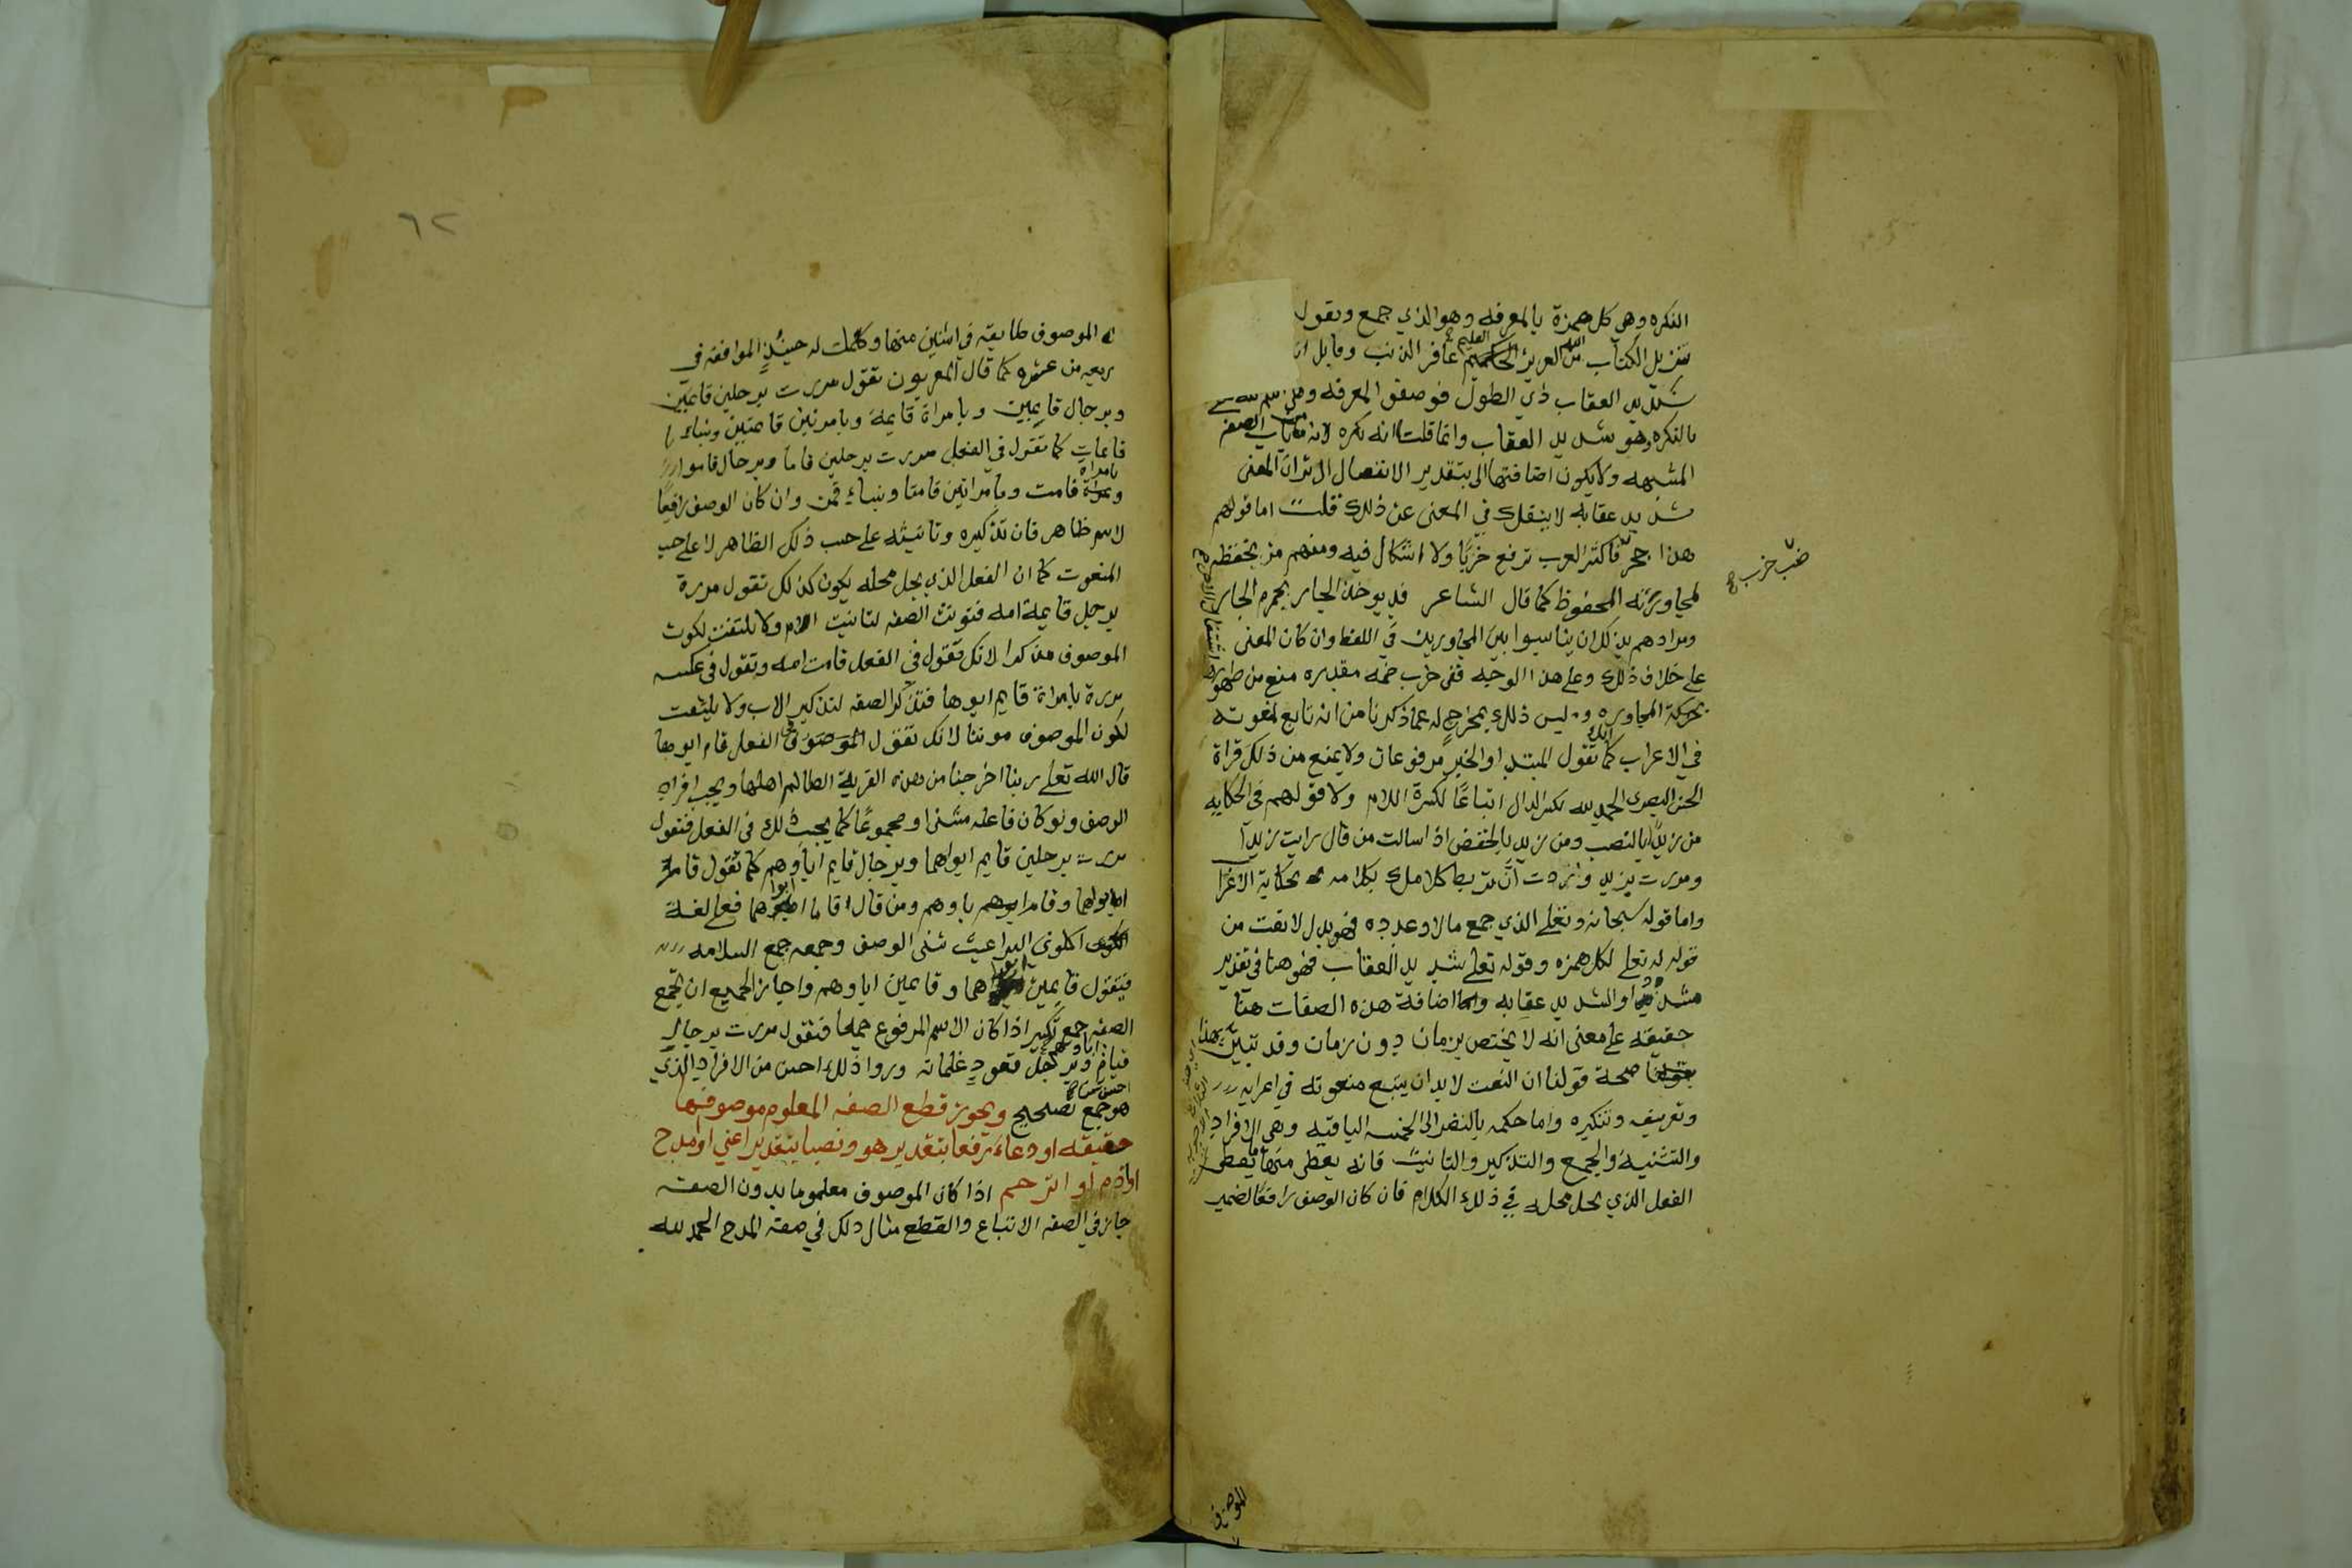 النكره وهي كل همزة بالمعرفه وهو الذي جمع وتقول
تنزيل الكتاب من الله العزيز العليم غافر الذنب وقابل التوب
شديد العقاب ذي الطول فوصف المعرفه
بالنكره وهو شديد العقاب وانما قلت انه نكره لانه من باب الصفه
المشبهه ولا يكون اضافتها الا بتقدير الانفصال الا ترا ان المعنى
شديد عقابه لا ينفك في المعنى عن ذلك قلت اما قولهم
هذا جحر فاكثر العرب ترفع خربا ولا اشكال فيه ومنهم من يخفظه
ضب خرب ح
لمجاورته المخفوظ كما قال الشاعر قد يوخذ الجار بجرم الجار
ومرادهم بذلك ان يناسبوا بين المجاورين في اللفظ وان كان المعنى
على خلاف ذلك وعلى هذا الوجه ففي خرب ضمه مقدره منع من ظهورها اشتغال الاخر
بحركة المجاوره وليس ذلك بمخرج له عما ذكرنا من انه تابع لمنعوته
في الاعراب كما انك تقول المبتدا والخبر مرفوعان ولا يمنع من ذلك قراة
الحسن البصري الحمد لله بكسر الدال اتباعا لكسرة اللام ولا قولهم في الحكايه
من زيدا بالنصب ومن زيد بالخفض اذا سالت من قال رايت زيدا
ومررت بزيد واردت ان تربط كلامك بكلامه بحكاية الاعراب
واما قوله سبحانه وتعلى الذي جمع مالا وعدده فهو بدل لا نعت من
قوله تعلى لكل همزه وقوله تعلى شديد العقاب فهو هنا في تقدير
او الشديد عقابه واما اضافة هذه الصفات هنا
حقيقه على معنى انه لا يختص بزمان دون زمان وقد تبين بهذا
صحة قولنا ان النعت لا بد ان يتبع منعوته في اعرابه
وتعريفه وتنكيره واما حكمه بالنضر الى الخمسه الباقيه وهي الافراد
والتثنية والجمع والتذكير والتانيث فانه يعطى منها ما يعطى
الفعل الذي يحل محله في ذلك الكلام فان كان الوصف رافعا لضمير
الموصوف
٦٢
الموصوف طابقه في اثنين منها وكملت له حينئذ الموافقه في
اربعه من عشره كما قال المعربون تقول مررت برجلين قايمين
وبرجال قايمين وبامراة قايمة وبامرتين قايمتين وبنساء
قايمات كما تقول في الفعل مررت برجلين قاما وبرجال قاموا
وبامراة قامت وبامراتين قامتا وبنساء قمن وان كان الوصف رافعا
لاسم ظاهر فان تذكيره وتانيثه على حسب ذلك الظاهر لا على حسب
المنعوت كما ان الفعل الذي يحل محله يكون كذلك تقول مررة
برجل قايمة امه فتونث الصفه لتانيث الام ولا يلتفت لكون
الموصوف مذكرا لانك تقول في الفعل قامت امه وتقول في عكسه
مررة بامراة قايم ابوها فتذكر الصفه لتذكير الاب ولا يلتفت
لكون الموصوف مونثا لانك تقول في الفعل قام ابوها
قال الله تعلى ربنا اخرجنا من هذه القرية الظالم اهلها ويجب افراد
الوصف ولو كان فاعله مثنى او مجموعا كما يجب ذلك في الفعل فتقول
مررت برجلين قايم ابواهما وبرجال قايم اباوهم كما تقول قام
ابواهما وقام اباوهم ومن قال قاما ابواهما فعلى لغة
اكلوني البراغيث ثنى الوصف وجمعه جمع السلامه
فيقول قايمين ابواهما وقايمين اباوهم واجاز الجميع ان تجمع
الصفه جمع تكسير اذا كان الاسم المرفوع جمعا فتقول مررت برجال
قيام اباوهم وبرجل قعود غلمانه وروا ذلك احسن من الافراد الذي
هو احسن من جمع تصحيح ويجوز قطع الصفه المعلوم موصوفها
حقيقه او دعاء رفعا بتقدير هو ونصبا بتقدير اعني او امدح
او اذم او الترحم اذا كان الموصوف معلوما بدون الصفه
جاز في الصفه الاتباع والقطع مثال ذلك في صفه المدح الحمد لله